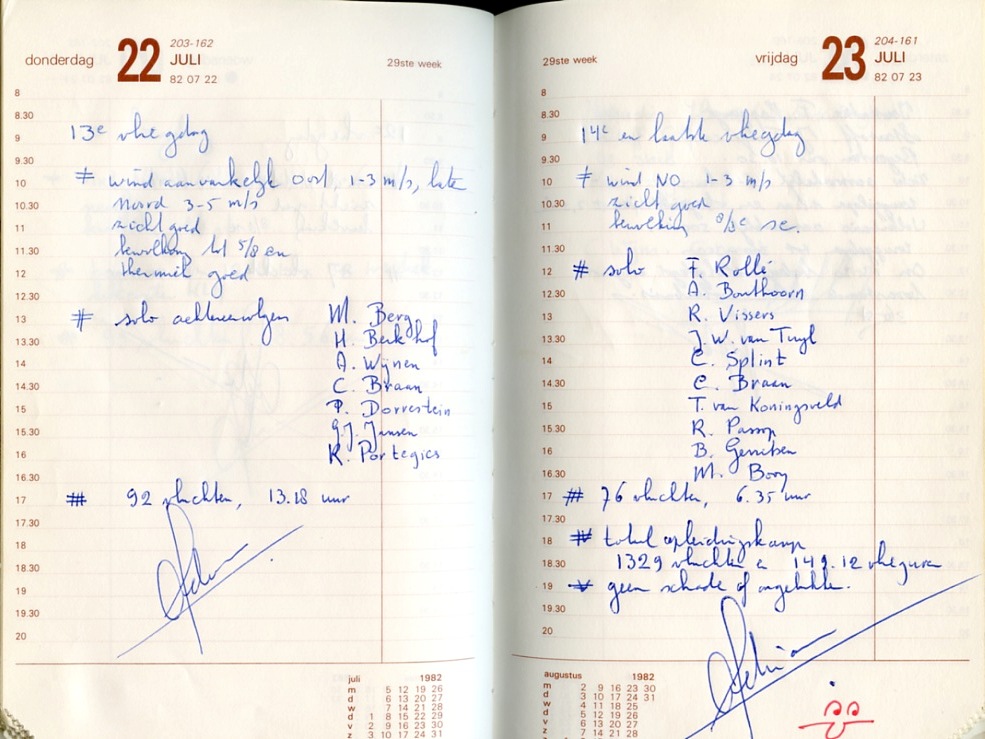 donderdag 22 203-162
JULI
82 07 22
29ste week
8
8.30
9
9.30
10
10.30
11
11.30
12
12.30
13
13.30
14
14.30
15
15.30
16
16.30
17
17.30
18
18.30
19
19.30
20
13e vliegdag
# wind aanvankelijk oost 1-3 m/s, later
noord 3-5 m/s
zicht goed
bewolking tot 5/8 en
thermiek goed
# solo achtereenvolgens M. Berg
H. Berkhof
A. Wijnen
C. Braan
P. Dorrestein
G.J. Jansen
R. Portegies
# 92 vluchten, 13.18 uur
juli 1982
m 5 12 19 26
d 6 13 20 27
w 7 14 21 28
d 1 8 15 22 29
v 2 9 16 23 30
z 3 10 17 24 31
29ste week
vrijdag 23 204-161
JULI
82 07 23
8
8.30
9
9.30
10
10.30
11
11.30
12
12.30
13
13.30
14
14.30
15
15.30
16
16.30
17
17.30
18
18.30
19
19.30
20
14e en laatste vliegdag
# wind NO 1-3 m/s
zicht goed
bewolking 8/8 sc
# solo F. Rollé
A. Bouthoorn
R. Vissers
J.W. van Tuyl
C. Splint
C. Braan
T. van Koningsveld
R. Passop
B. Gerritsen
M. Booy
# 76 vluchten, 6.35 uur
# totaal opleidingskamp
1329 vluchten en 149.12 vlieguren
# geen schade of ongelukken.
augustus 1982
m 2 9 16 23 30
d 3 10 17 24 31
w 4 11 18 25
d 5 12 19 26
v 6 13 20 27
z 7 14 21 28